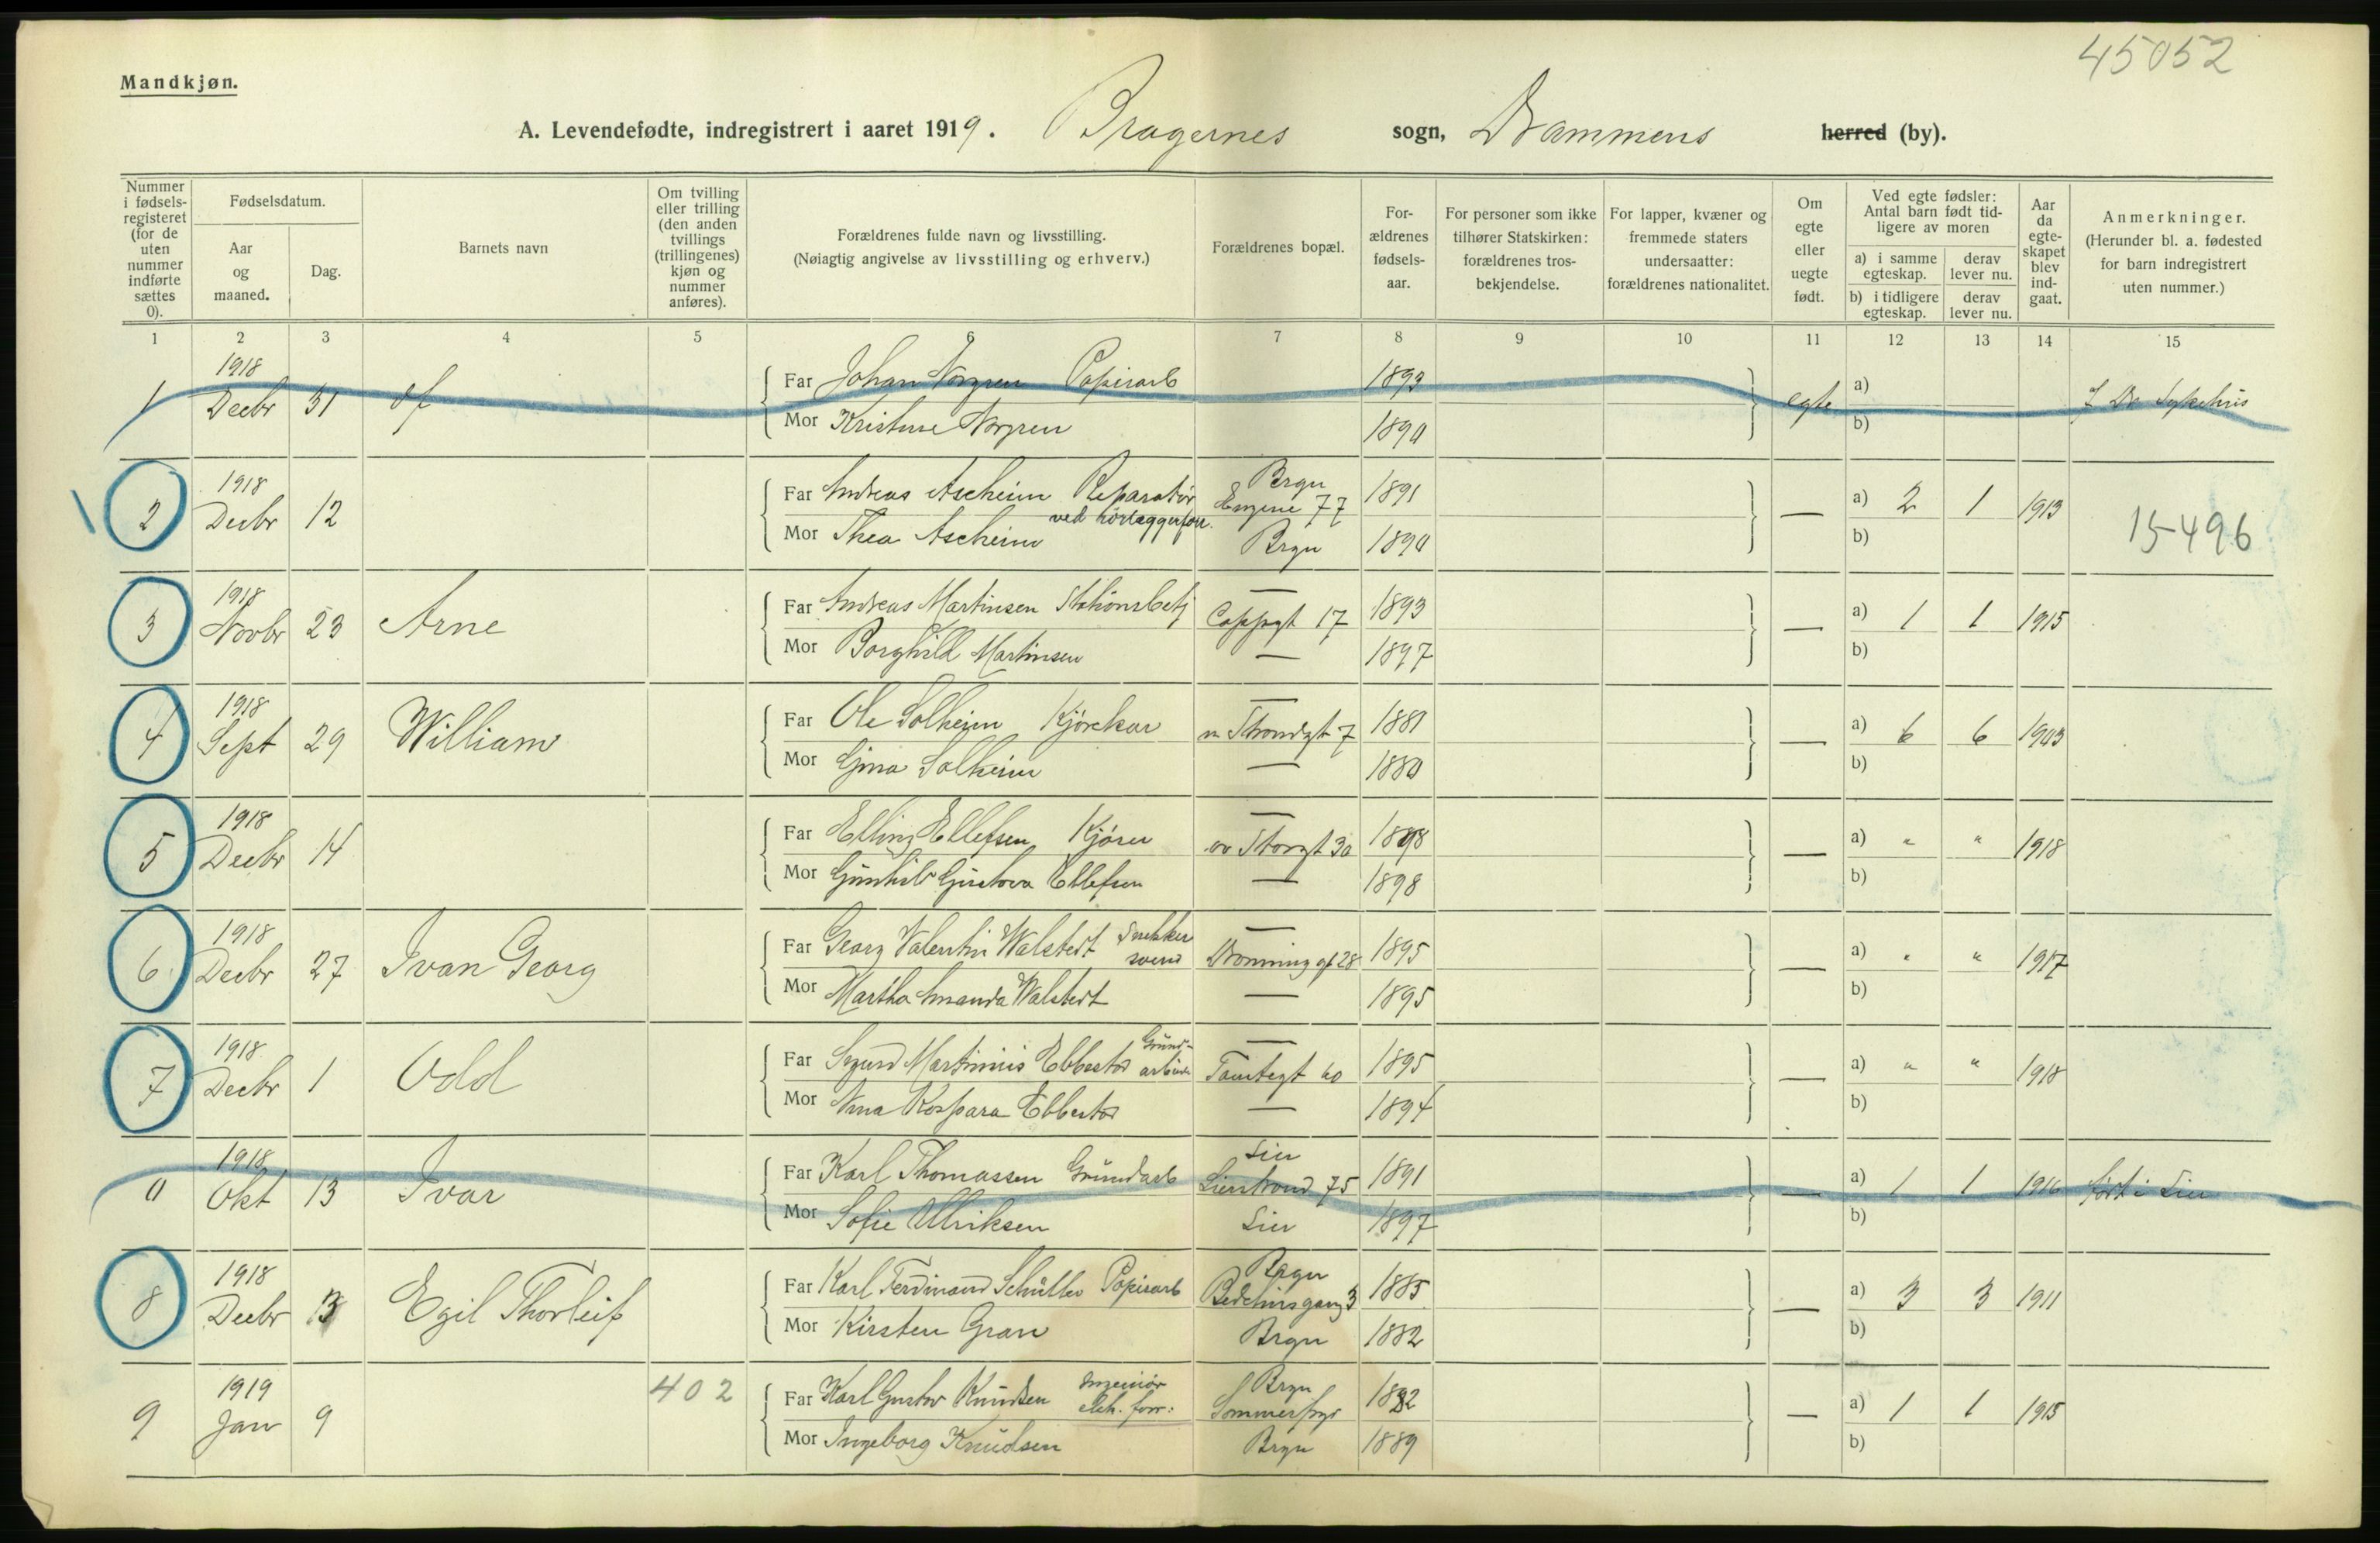 45052
Mandkjøn.
A. Levendefødte, indregistrert i aaret 1919. Bragernes sogn, Drammens herred (by).
Nummer i fødselsregisteret (for de uten nummer indførte sættes 0).
Fødselsdatum.
Aar og maaned.
Dag.
Barnets navn
Om tvilling eller trilling (den anden tvillings (trillingenes) kjøn og nummer anføres).
Forældrenes fulde navn og livsstilling.
(Nøiagtig angivelse av livsstilling og erhverv.)
Forældrenes bopæl.
For-ældrenes fødsels-aar.
For personer som ikke tilhører Statskirken: forældrenes tros-bekjendelse.
For lapper, kvæner og fremmede staters undersaatter: forældrenes nationalitet.
Om egte eller uegte født.
Ved egte fødsler: Antal barn født tid-ligere av moren
a) i samme egteskap.
derav lever nu.
b) i tidligere egteskap.
derav lever nu.
Aar da egte-skapet blev ind-gaat.
Anmerkninger.
(Herunder bl. a. fødested for barn indregistrert uten nummer.)
1 2 3 4 5 6 7 8 9 10 11 12 13 14 15
1 1918 Decbr 31 Far Johan Norgren Papirarb 1893 egte a)
Mor Kristine Norgren 1890 b)
2 1918 Decbr 12 Far Andreas Ascheim Reparatör ved rörlæggerforr. Brgn Engene 77 1891 — a) 2 1 1913 15496
Mor Thea Ascheim Brgn 1890 b)
3 1918 Novbr 23 Arne Far Andreas Martinsen Stationsbetj — Cappgt 17 1893 — a) 1 1 1915
Mor Borghild Martinsen — 1897 b)
4 1918 Sept 29 William Far Ole Solheim Kjørekar — 1881 — a) 6 6 1903
Mor Gina Solheim — 1880 b)
5 1918 Decbr 14 Far Elling Ellefsen Kjører — 1898 — a) " " 1918
Mor Gunhild Gustava Ellefsen — 1898 b)
6 1918 Decbr 27 Ivan Georg Far Georg Valentin Walstedt Snekker svend — Dronninggt 28 1895 — a) " " 1917
Mor Martha Amanda Walstedt — 1895 b)
7 1918 Decbr 1 Odd Far Sigurd Martinius Ebbestad — Tomtegt 1895 — a) " " 1918
Mor Ebbestad — 1894 b)
0 1918 Okt 13 Ivar Far Karl Thomassen Grundarb Lier Lierstrand 75 1891 — a) 1 1 1916 ført i Lier
Mor Sofie Ulriksen Lier 1897 b)
8 1918 Decbr 3 Egil Thorleif Far Karl Ferdinand Schüller Papirarb Bragn Bedehusgang 3 1885 — a) 3 3 1911
Mor Kirsten Gran Brgn 1882 b)
9 1919 Jan 9 402 Far Karl Gustav Knudsen Ingeniör elek. forr: Brgn 1882 — a) 1 1 1915
Mor Ingeborg Knudsen Brgn 1889 b)